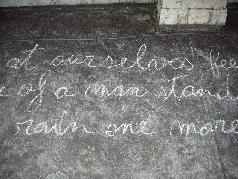 at ourselves fee
e of a man stand
rain one more